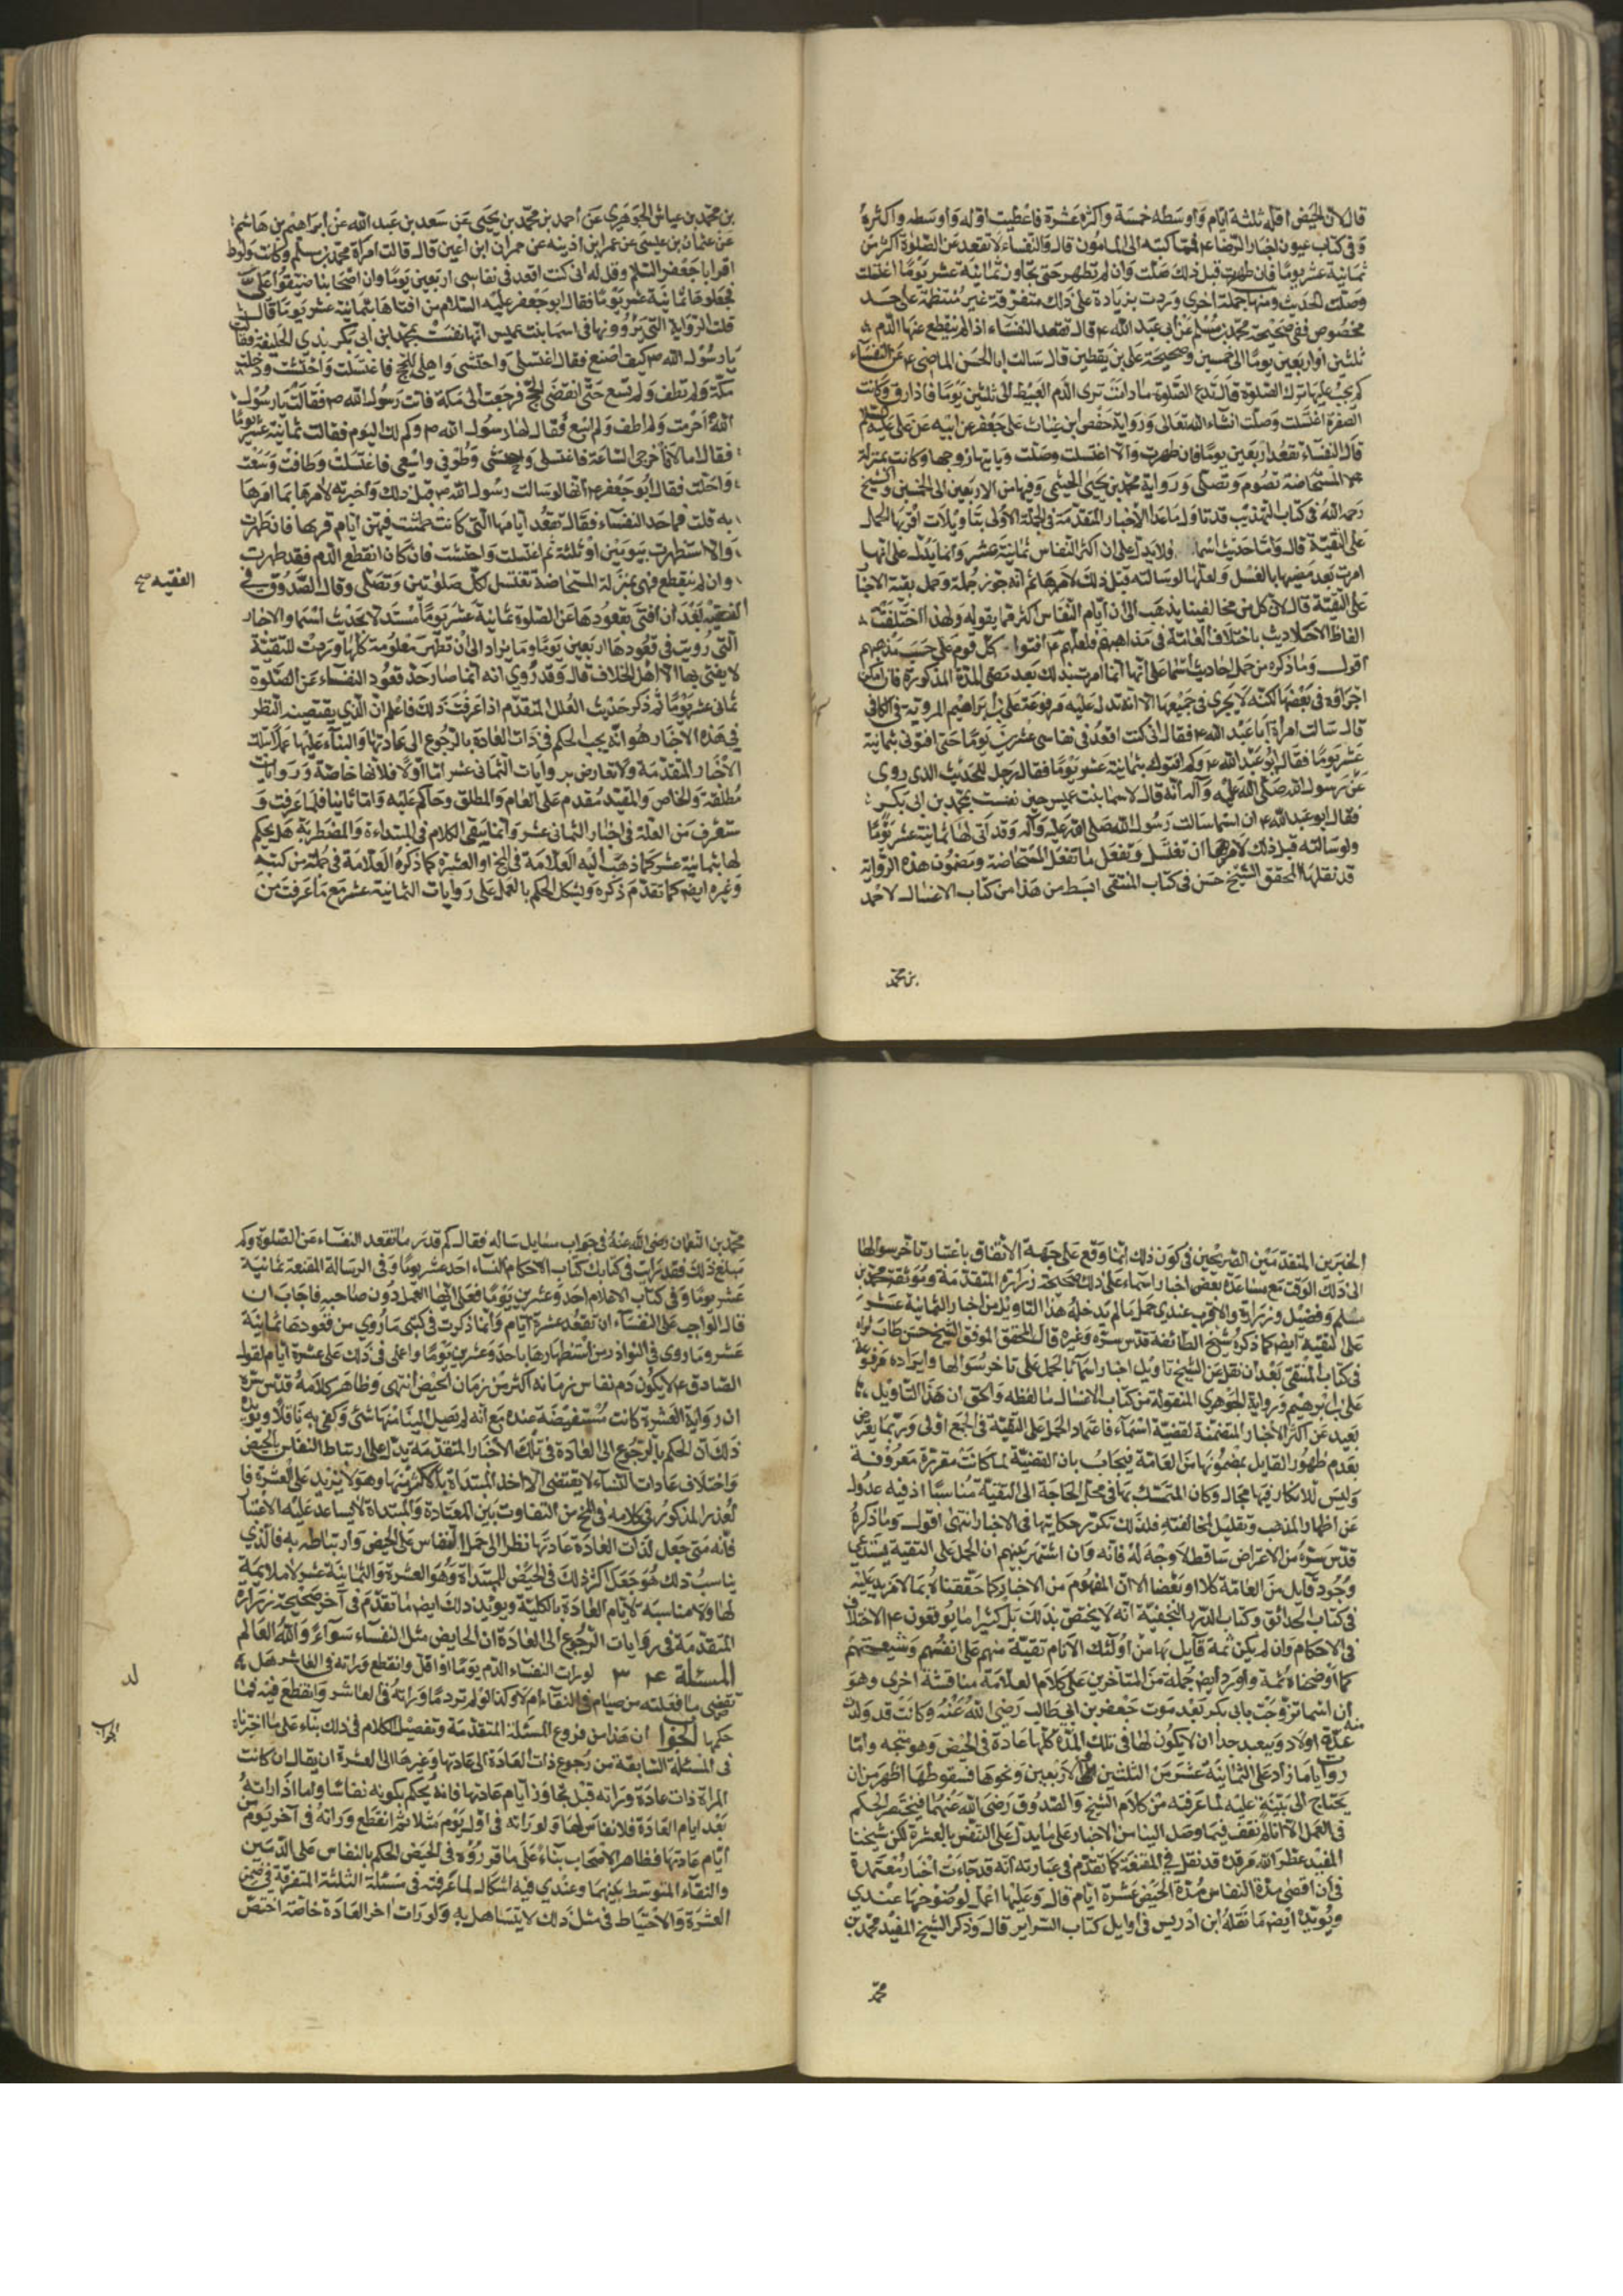 قال لان الحيض اقله ثلثة ايام واوسطه خمسة واكثره عشرة فاعطيت اوله واوسطه واكثره
وفي كتاب عيون اخبار الرضا ع فيما كتبه الى المامون قال والنفساء لا تقعد عن الصلوة اكثر من
ثمانية عشر يوما فان طهرت قبل ذلك صلت وان لم تطهر حتى تجاوز ثمانية عشر يوما اغتسلت
وصلت الحديث ومنها جملة اخرى وردت بزيادة على ذلك متفرقة غير منتظمة على حد
مخصوص ففي صحيحة محمد بن مسلم عن ابي عبد الله ع قال تقعد النفساء اذا لم ينقطع عنها الدم
ثلثين او اربعين يوما الى خمسين وصحيحة علي بن يقطين قال سالت ابا الحسن الماضي ع عن النفساء
كم يجب عليها ترك الصلوة قال تدع الصلوة ما دامت ترى الدم العبيط الى ثلثين يوما فاذا رق وكانت
الصفرة اغتسلت وصلت انشاء الله تعالى ورواية حفص بن غياث عن جعفر عن ابيه عن علي عليه السلام
قال النفساء تقعد اربعين يوما فان طهرت والا اغتسلت وصلت وياتيها زوجها وكانت بمنزلة
المستحاضة تصوم وتصلي ورواية محمد بن يحيى الخثعمي وفيها من الاربعين الى الخمسين والشيخ
رحمه الله في كتاب التهذيب قد تاول ما عدا الاخبار المتقدمة في الجملة الاولى بتاويلات اقربها الحمل
على التقية قال واما حديث اسما ولا يدل على ان اكثر النفاس ثمانية عشر وانما يدل على انها
امرت بعد مضيها بالغسل ولعلها لو سالته قبل ذلك لامرها ثم انه جوز جملة وحمل بقية الاخبار
على التقية قال لان كل من مخالفينا يذهب الى ان ايام النفاس اكثر مما يقوله ولهذا اختلفت
الفاظ الاحاديث باختلاف العامة في مذاهبهم فلعلهم ع افتوا كل قوم على حسب مذهبهم
اقول وما ذكره من حمل احاديث اسما على انها انما امرت بذلك بعد مضي المدة المذكورة فان امكن
اجراؤه في بعضها لكنه لا يجرى في جميعها الا انه تدل عليه مرفوعة علي بن ابراهيم المروية في الكافي
قال سالت امراة ابا عبد الله ع فقالت اني كنت اقعد في نفاسي عشرين يوما حتى افتوني بثمانية
عشر يوما فقال ابو عبد الله ع ولم افتوك بثمانية عشر يوما فقال رجل للحديث الذي روى
عن رسول الله صلى الله عليه وآله انه قال لاسما بنت عميس حين نفست بمحمد بن ابي بكر
فقال ابو عبد الله ع ان اسما سالت رسول الله صلى الله عليه وآله وقد اتى لها ثمانية عشر يوما
ولو سالته قبل ذلك لامرها ان تغتسل وتفعل ما تفعل المستحاضة ومضمون هذه الرواية
قد نقلها المحقق الشيخ حسن في كتاب المنتقى ابسط من هذا من كتاب الاغسال لاحمد
بن محمد
بن محمد بن عياش الجوهري عن احمد بن محمد بن يحيى عن سعد بن عبد الله عن ابراهيم بن هاشم
عن عثمان بن عيسى عن عمر ابن اذينه عن حمران ابن اعين قال قالت امراة محمد بن مسلم وكانت ولودا
اقرا ابا جعفر السلم وقل له اني كنت اقعد في نفاسي اربعين يوما وان اصحابنا ضيقوا علي
فجعلوها ثمانية عشر يوما فقال ابو جعفر عليه السلام من افتاها بثمانية عشر يوما قال
قلت الرواية التي رووها في اسما بنت عميس انها نفست بمحمد ابن ابي بكر بذي الحليفة فقالت
يا رسول الله ص كيف اصنع فقال اغتسلي واحتشي واهلي بالحج فاغتسلت واحتشت ودخلت
مكة ولم تطف ولم تسع حتى انقضى الحج فرجعت الى مكة فاتت رسول الله ص فقالت يا رسول
الله احرمت ولم اطف ولم اسع فقال لها رسول الله ص وكم لك اليوم فقالت ثمانية عشر يوما
فقال اما الان فاخرجي الساعة فاغتسلي واحتشي وطوفي واسعي فاغتسلت وطافت وسعت
واحلت فقال ابو جعفر ع انها لو سالت رسول الله ص قبل ذلك واخبرته لامرها بما امرها
به قلت فما حد النفساء فقال تقعد ايامها التي كانت تطمث فيهن ايام قرئها فان طهرت
والا استظهرت بيومين او ثلثة ثم اغتسلت واحتشت فان كان انقطع الدم فقد طهرت
وان لم ينقطع فهي بمنزلة المستحاضة تغتسل لكل صلوتين وتصلي وقال الصدوق في
الفقيه بعد ان افتى بقعودها عن الصلوة ثمانية عشر يوما مستدلا بحديث اسما والاخبار
الفقيه صح
التي رويت في قعودها اربعين يوما وما زاد الى ان تطهر معلومة كلها وردت للتقية
لا يفتي بها الا اهل الخلاف قال وقد روي انه انما صار حد قعود النفساء عن الصلوة
ثماني عشر يوما ثم ذكر حديث العلل المتقدم اذا عرفت ذلك فاعلم ان الذي يقتضيه النظر
في هذه الاخبار هو انه يجب الحكم في ذات العادة بالرجوع الى عادتها والبناء عليها عملا بتلك
الاخبار المتقدمة ولا تعارض بروايات الثماني عشر اما اولا فلانها خاصة وروايات
مطلقة والخاص والمقيد مقدم على العام والمطلق وحاكم عليه واما ثانيا فلما عرفت و
ستعرف من العلة في اخبار الثماني عشر وانما يبقى الكلام في المبتداءة والمضطربة هل يحكم
لها بثمانية عشر كما ذهب اليه العلامة في المخ او العشرة كما ذكره العلامة في جملة من كتبه
وغيره ايض كما تقدم ذكره ويشكل الحكم بالعمل على روايات الثمانية عشر مع ما عرفت من
الخبرين المتقدمين الصريحين في كون ذلك انما وقع على جهة الاتفاق باعتبار تاخر سوالها
الى ذلك الوقت مع مساعدة بعض اخبار اسماء على ذلك كصحيحة زرارة المتقدمة وموثقة محمد بن
مسلم وفضيل وزرارة والاقرب عندي حمل ما لم يدخله هذا التاويل من اخبار الثمانية عشر
على التقية ايض كما ذكره شيخ الطائفة قدس سره وغيره قال المحقق الموفق الشيخ حسن طاب ثراه
في كتاب المنتقى بعد ان نقل عن الشيخ تاويل اخبار اسما بالحمل على تاخر سوالها وايراده مرفوعة
علي بن ابرهيم ورواية الجوهري المنقولة من كتاب الاغسال ما لفظه والحق ان هذا التاويل
بعيد عن اكثر الاخبار المتضمنة لقضية اسماء فاعتماد الحمل على التقية في الجمع اولى وربما يعرض
بعدم ظهور القايل بمضمونها من العامة فيجاب بان القضية لما كانت مقررة معروفة
وليس للانكار فيها مجال وكان المتمسك بها في محل الحاجة الى التقية مناسبا اذ فيه عدول
عن اظهار المذهب وتقليل المخالفته فلذلك تكرر حكايتها في الاخبار انتهى اقول وما ذكره
قدس سره من الاعتراض ساقط لا وجه له فانه وان اشتهر بينهم ان الحمل على التقية يستدعي
وجود قايل من العامة كلا او بعضا الا ان المفهوم من الاخبار كما حققناه بما لا مزيد عليه
في كتاب الحدائق وكتاب الدرر النجفية انه لا يختص بذلك بل كثيرا ما يوقعون ع الاختلاف
في الاحكام وان لم يكن ثمة قايل بها من اولئك الانام تقية منهم على انفسهم وشيعتهم
كما اوضحناه ثمة واورد ايض جملة من المتاخرين على كلام العلامة مناقشة اخرى وهو
ان اسما تزوجت بابي بكر بعد موت جعفر بن ابي طالب رضي الله عنه وكانت قد ولدت منه
عدة اولاد ويبعد جدا ان لا يكون لها في تلك المدة كلها عادة في الحيض وهو متجه واما
روايات ما زاد على الثمانية عشر من الثلثين الى الاربعين ونحوها فسقوطها اظهر من ان
يحتاج الى بينة عليه لما عرفته من كلام الشيخ والصدوق رضي الله عنهما فينحصر الحكم
في العمل الا انا لم نقف فيما وصل الينا من الاخبار على ما يدل على التنفس بالعشرة لكن شيخنا
المفيد عطر الله مرقده قد نقل في المقنعة كما تقدم في عبارته انه قد جاءت اخبار معتمدة
في ان اقصى مدة النفاس مدة الحيض عشرة ايام قال وعليها اعمل لوضوحها عندي
ويؤيده ايض ما نقله ابن ادريس في اوايل كتاب السراير قال وذكر الشيخ المفيد محمد بن
محمد
محمد بن النعمان رضي الله عنه في جواب سايل ساله فقال كم قدر ما تقعد النفساء عن الصلوة وكم
مبلغ ذلك فقد رات في كتابك كتاب الاحكام النساء احد عشر يوما وفي الرسالة المقنعة ثمانية
عشر يوما وفي كتاب الاعلام احد وعشرين يوما فعلى ايها العمل دون صاحبه فاجاب ان
قال الواجب على النفساء ان تقعد عشرة ايام وانما ذكرت في كتبي ما روي من قعودها ثمانية
عشر وما روى في النوادر من استظهارها باحد وعشرين يوما واعلى في ذلك على عشرة ايام لقول
الصادق ع لا يكون دم نفاس زمانه اكثر من زمان الحيض انتهى وظاهر كلامه قدس سره
ان رواية العشرة كانت مستفيضة عنده مع انه لم يصل الينا منها شئ وكفى به ناقلا ويؤيد
ذلك ان الحكم بالرجوع الى العادة في تلك الاخبار المتقدمة يدل على ارتباط النفاس بالحيض
واختلاف عادات النساء لا يقتضي الا اخذ المبتداة بالاكثر منها وهو لا يزيد على العشرة فا
لعذر المذكور في كلامه في المخ من التفاوت بين المعتادة والمبتداة لا يساعد عليه الاعتبار
فانه متى جعل لذات العادة عادتها نظرا الى حمل النفاس على الحيض وارتباطه به فالذي
يناسب ذلك هو جعل اكثر ذلك في الحيض للمبتداة وهو العشرة والثمانية عشر لا ملائمة
لها ولا مناسبة لايام العادة بالكلية ويؤيد ذلك ايض ما تقدم في آخر صحيحة زرارة
المتقدمة في روايات الرجوع الى العادة ان الحايض مثل النفساء سواء والله العالم
المسئلة ٣٤ لو رات النفساء الدم يوما او اقل وانقطع وراته في العاشر هل
تقضي ما فعلته من صيام في النقاء ام لا وكذا لو لم تر دما وراته في العاشر وانقطع فيه فما
لد
حكمها الجواب ان هذا من فروع المسئلة المتقدمة وتفصيل الكلام في ذلك بناء على ما اخترناه
الجواب
في المسئلة السابقة من رجوع ذات العادة الى عادتها وغيرها الى العشرة ان يقال ان كانت
المراة ذات عادة وراته قبل تجاوز ايام عادتها فانه يحكم بكونه نفاسا واما اذا راته
بعد ايام العادة فلا نفاس لها ولو راته في اول يوم مثلا ثم انقطع وراته في آخر يوم من
ايام عادتها فظاهر الاصحاب بناء على ما قرروه في الحيض الحكم بالنفاس على الدمين
والنقاء المتوسط بينهما وعندي فيه اشكال لما عرفته في مسئلة الثلثة المتفرقة في ضمن
العشرة والاحتياط في مثل ذلك لا يتساهل به ولو رات اخر العادة خاصة اختص